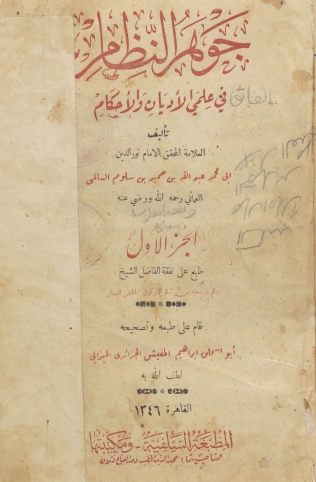 جوهر النظام
في علمي الأديان والأحكام
الفائق
تأليف
العلامة المحقق الامام نور الدين
ابى محمد عبد الله بن حميد بن سلوم السالمي
العماني رحمه الله ورضي عنه
الجزء الأول
طبع على نفقة الفاضل الشيخ
قام على طبعه وتصحيحه
أبو اسحاق ابراهيم اطفيش الجزائري الميزابي
لطف الله به
القاهرة ١٣٤٦
المطبعة السلفية - ومكتبتها